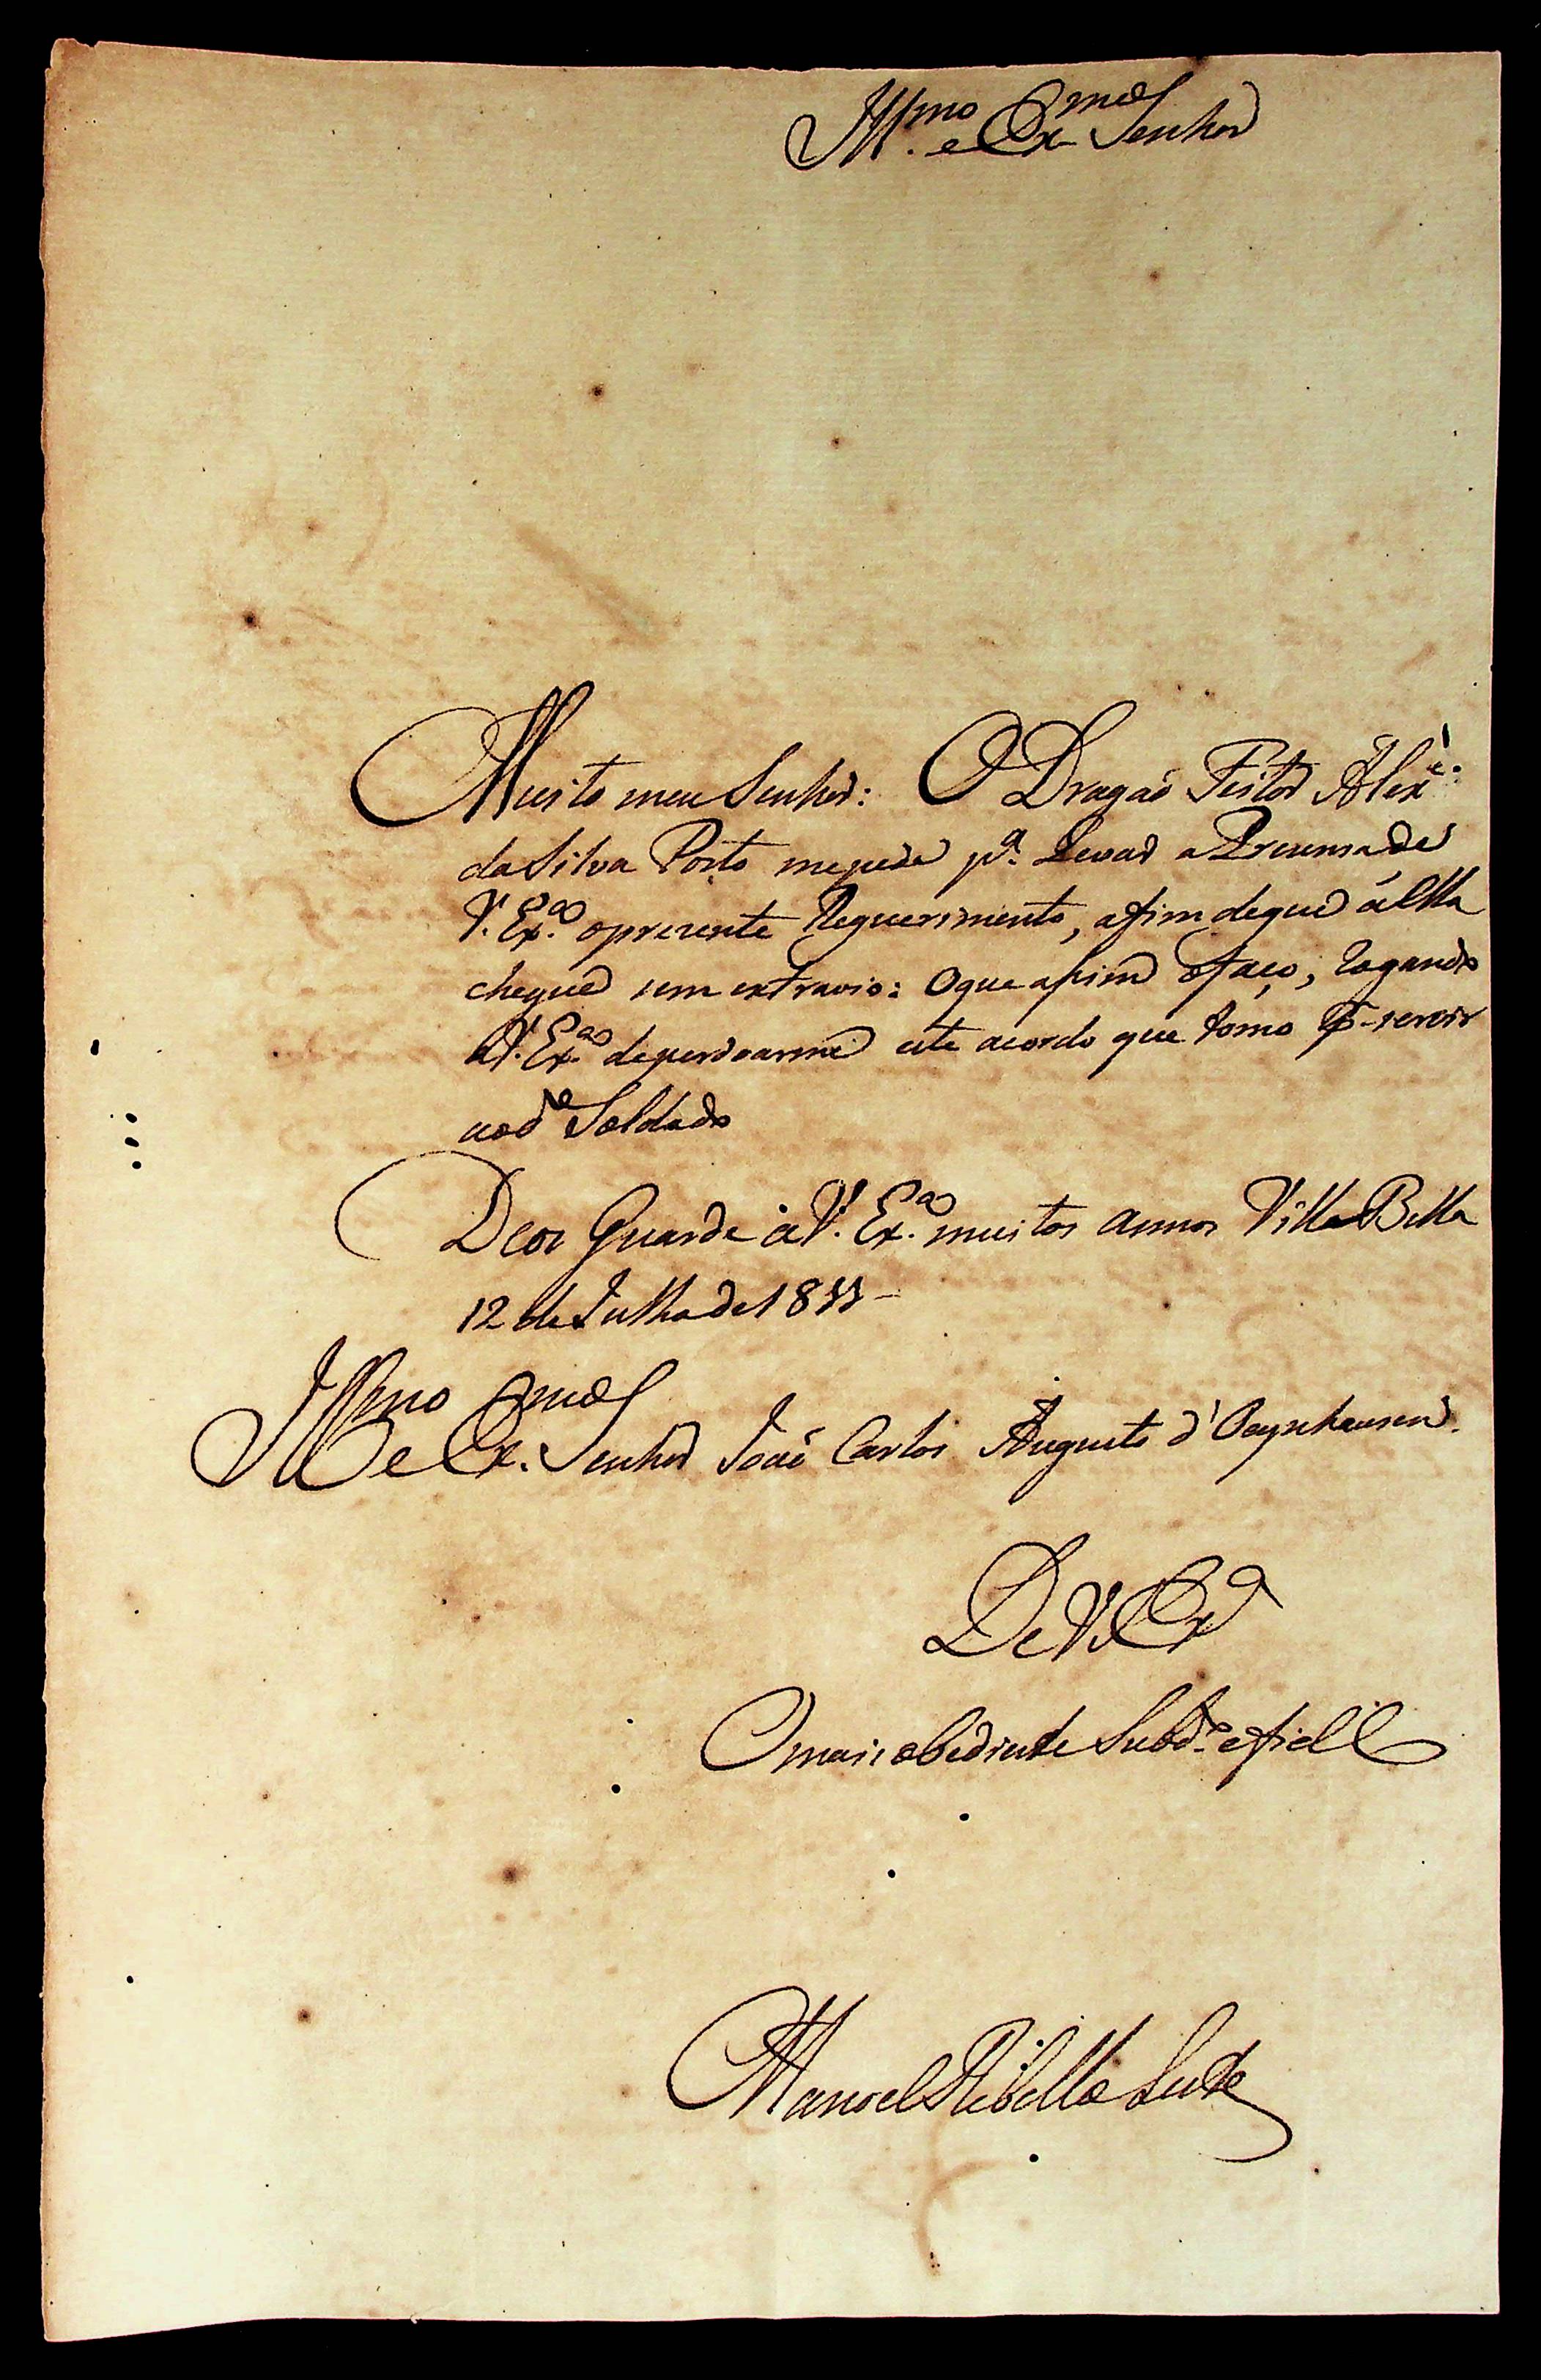 Ill.mo e Ex.mo Senhor
Muito meu Senhor: O Dragaõ Feitor Alex.e
da Silva Porto mepede p.a Levar a Prezensa de
V. Ex.a oprezente Requerimento, afim deque á Ella
chegue sem extravio: Oque assim ofaço, rogando
a V. Ex.a deperdoarme este acordo que tomo p. servir
aod.e Soldado
Deos Guarde áV. Ex.a muitos annos Villa Bella
12 de Julho de 1811
Ill.mo e Ex.mo Senhor Joaõ Carlos Augusto d'Oeynhausen.
De V. Ex.a
Omais obediente Subd.o efiel
Manoel Rebello Leite